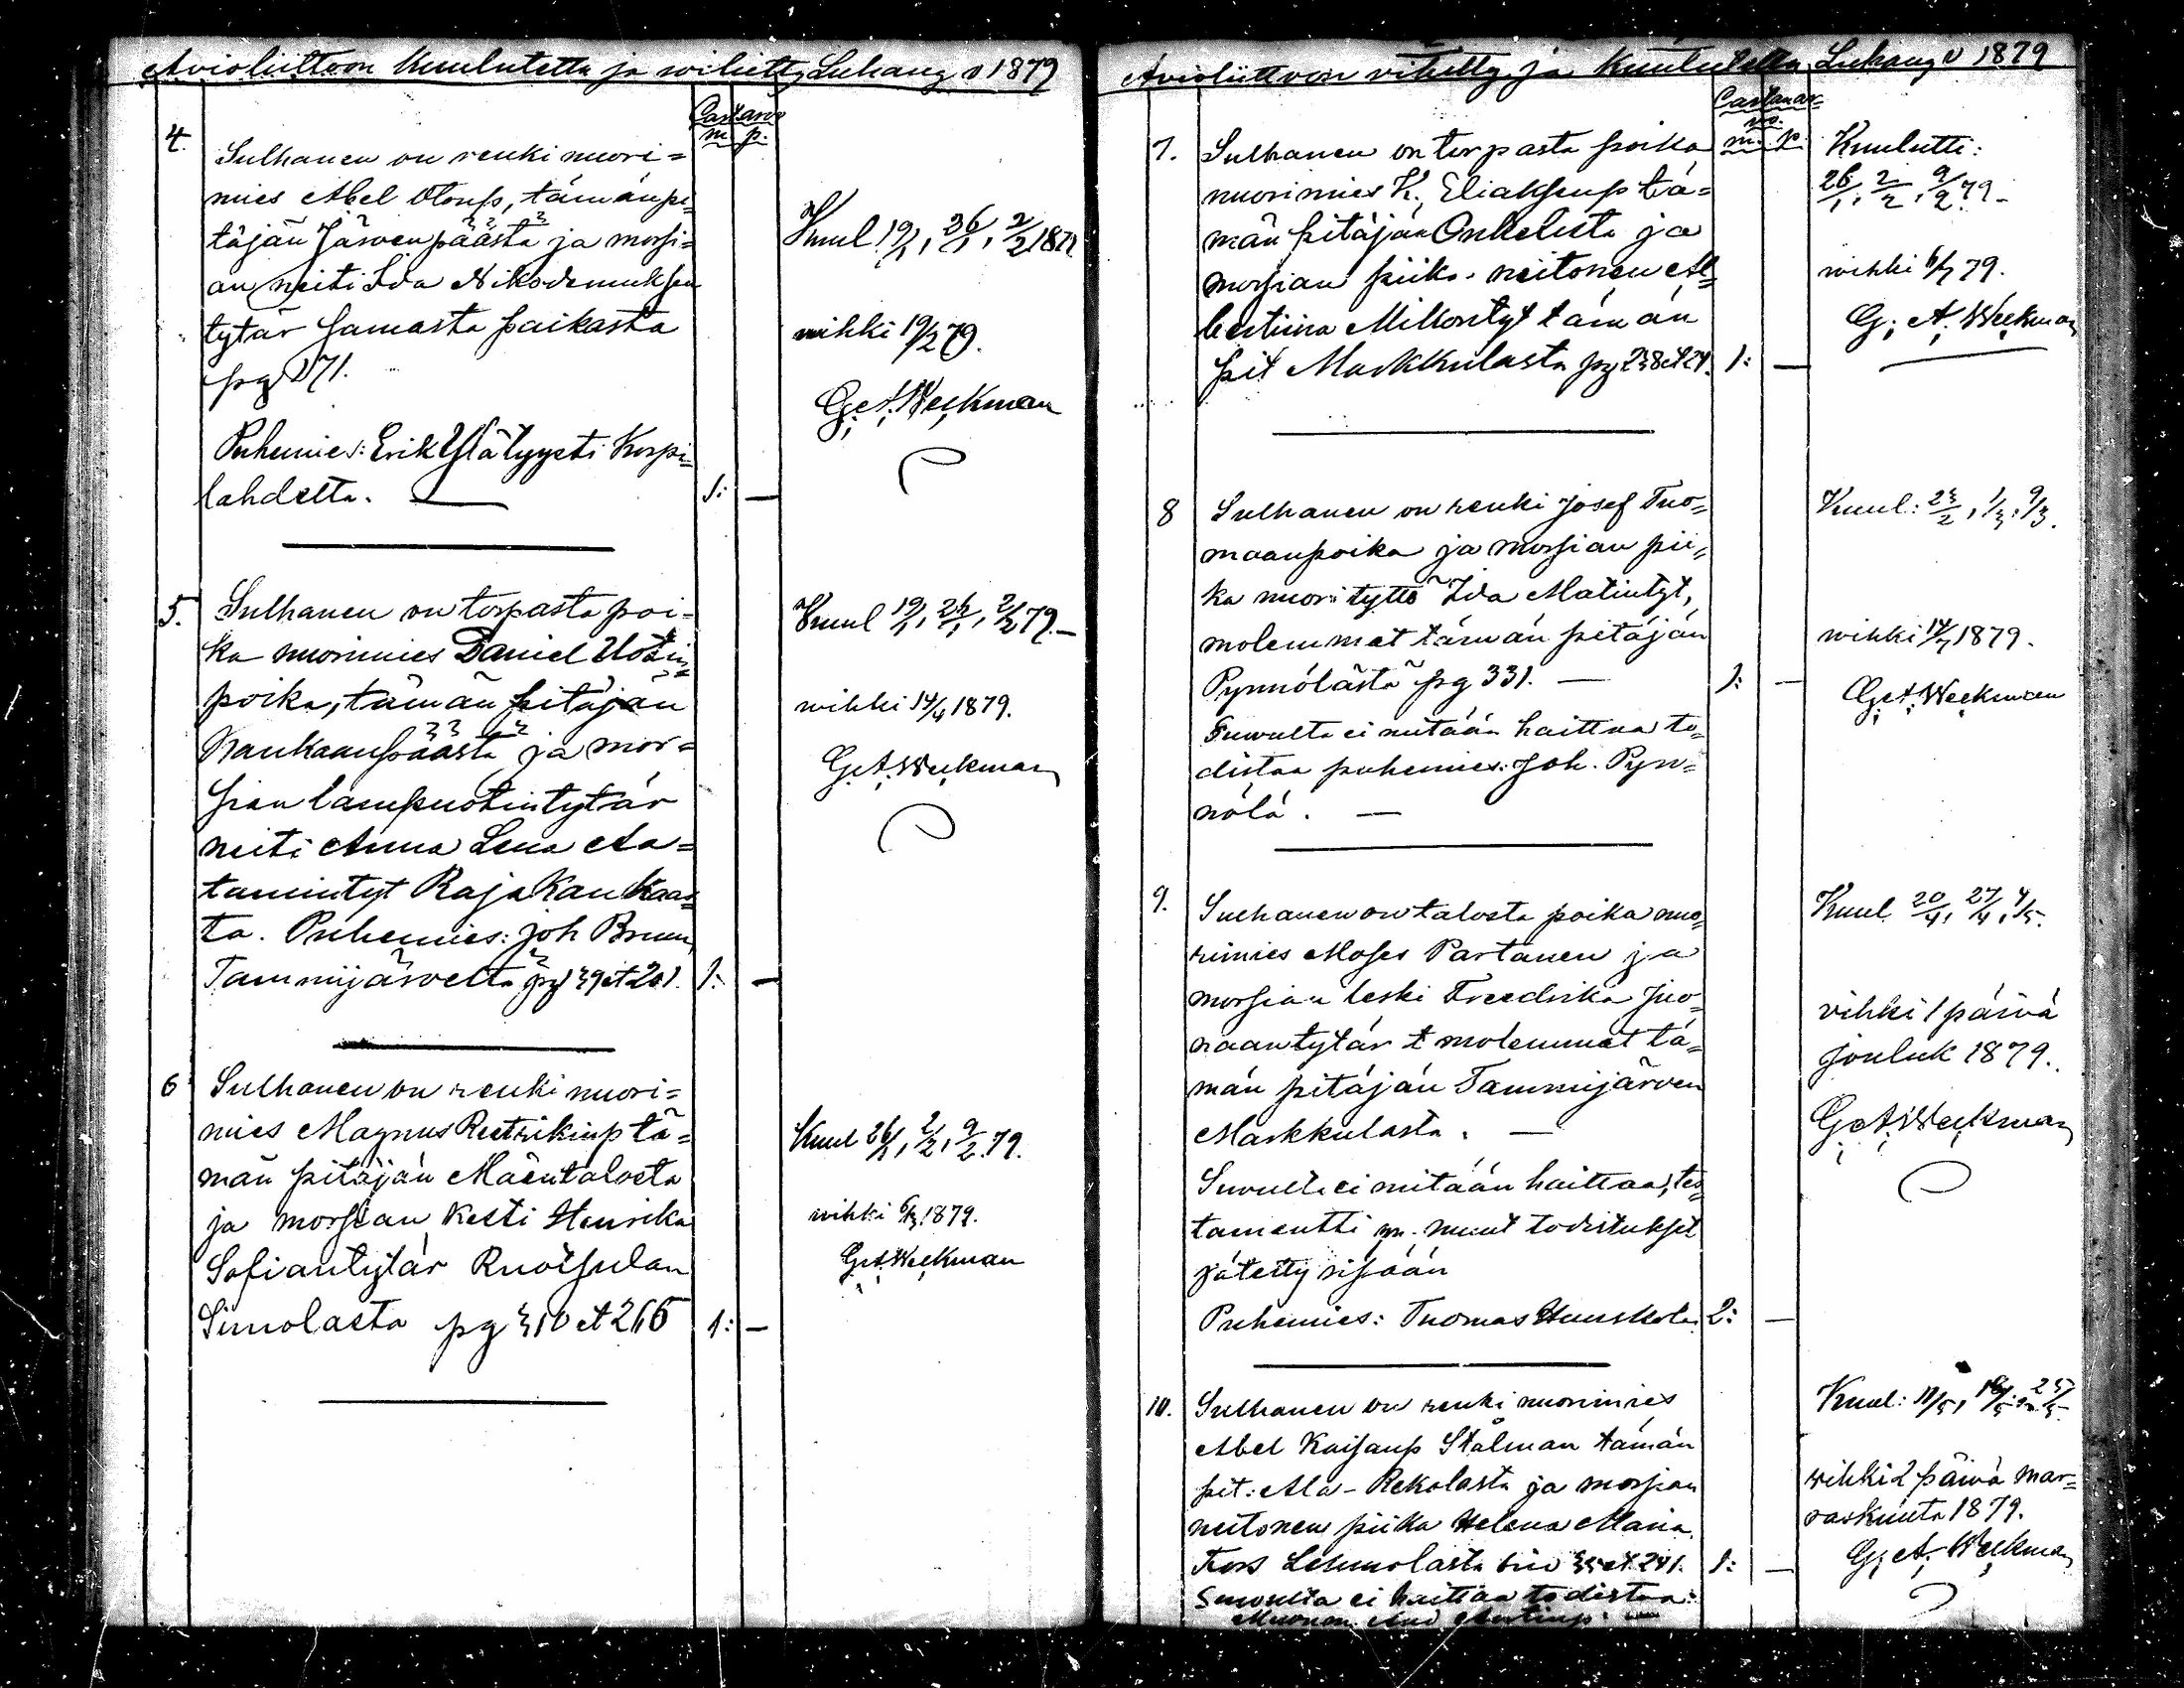 Avioliittoon kuulutettu ja wihitty Luhang v 1879
Castarvo
m. p.
4. Sulhanen on renki nuori=
mies Abel Otonp, tämänpi=
täjän Järvenpäästä ja morsi=
an neiti Ida Nikodemuksen
tytär samasta paikasta
pg 171.
Puhemies: Erik Ylätyysti Korpi=
lahdelta. 1: —
Kuul 19/1, 26/1, 2/2 1879
wihki 19/2 79.
G. A. Weekman
5. Sulhanen on torpasta poi=
ka nuorimies Daniel Uotin
poika, tämän pitäjän
Kaukaanpäästä ja mor=
sian lampuotintytär
neiti Anna Lena Aa=
tamintyt Rajakaukaas=
ta. Puhemies: Joh Bruun
Tammijärveltä pg 139 et 201. 1: —
Kuul 19/1, 26/1, 2/2 79. —
wihki 14/4 1879.
G. A. Weekman
6 Sulhanen on renki nuori=
mies Magnus Reetrikinp tä=
män pitäjän Mäentalosta
ja morsian kesti Henrika
Sofiantytär Ruotsulan
Simolasta pg 310 et 266 1: —
Kuul 26/1, 2/2, 9/2. 79.
wihki 6/3 1879.
G. A. Weekman
Avioliittoon vihitty ja kuulutettu Luhang v 1879
Castanar=
vo.
m. p.
7. Sulhanen on torpasta poika
nuorimies K. Eliaksenp tä=
män pitäjän Onkelista ja
morsian piika neitonen Al=
bertiina Mikontyt tämän
pit Markkulasta pg 238 et 24. 1: —
Kuulutti:
26/1, 2/2, 9/2 79. —
wihki 6/4 79.
G. A. Weekman
8 Sulhanen on renki Josef Tuo=
maanpoika ja morsian pii=
ka nuori tyttö Ida Matintyt,
molemmat tämän pitäjän
Pynnölästä pg 331. — 1: —
Suvulta ei mitään haittaa to=
distaa puhemies: Joh. Pyn=
nölä. —
Kuul: 23/2, 1/3, 9/3.
wihki 14/4 1879.
G. A. Weekman
9. Sulhanen on talosta poika nuo=
rimies Moses Partanen ja
morsian leski Freedrika Juo=
naantytär t molemmat tä=
män pitäjän Tammijärven
Markkulasta. —
Suvulta ei mitään haittaa, tes=
tamentti ym. muut todistukset
jätetty sisään
Puhemies: Tuomas Hunskola 2: —
Kuul 20/4, 27/4, 4/5.
vihki 1 päivä
Jouluk 1879.
G. A. Weekman
10. Sulhanen on renki nuorimies
Abel Kaisanp Stålman tämän
pit: Ala-Rekolasta ja morsian
neitonen piika Helena Maria
Fors Lehmolasta siv 35 et 241. 1: —
Suvulta ei haittaa todistaa:
Kuul: 11/5, 18/5, 25/5.
vihki 2 päivä mar=
raskuuta 1879.
G. A. Weekman